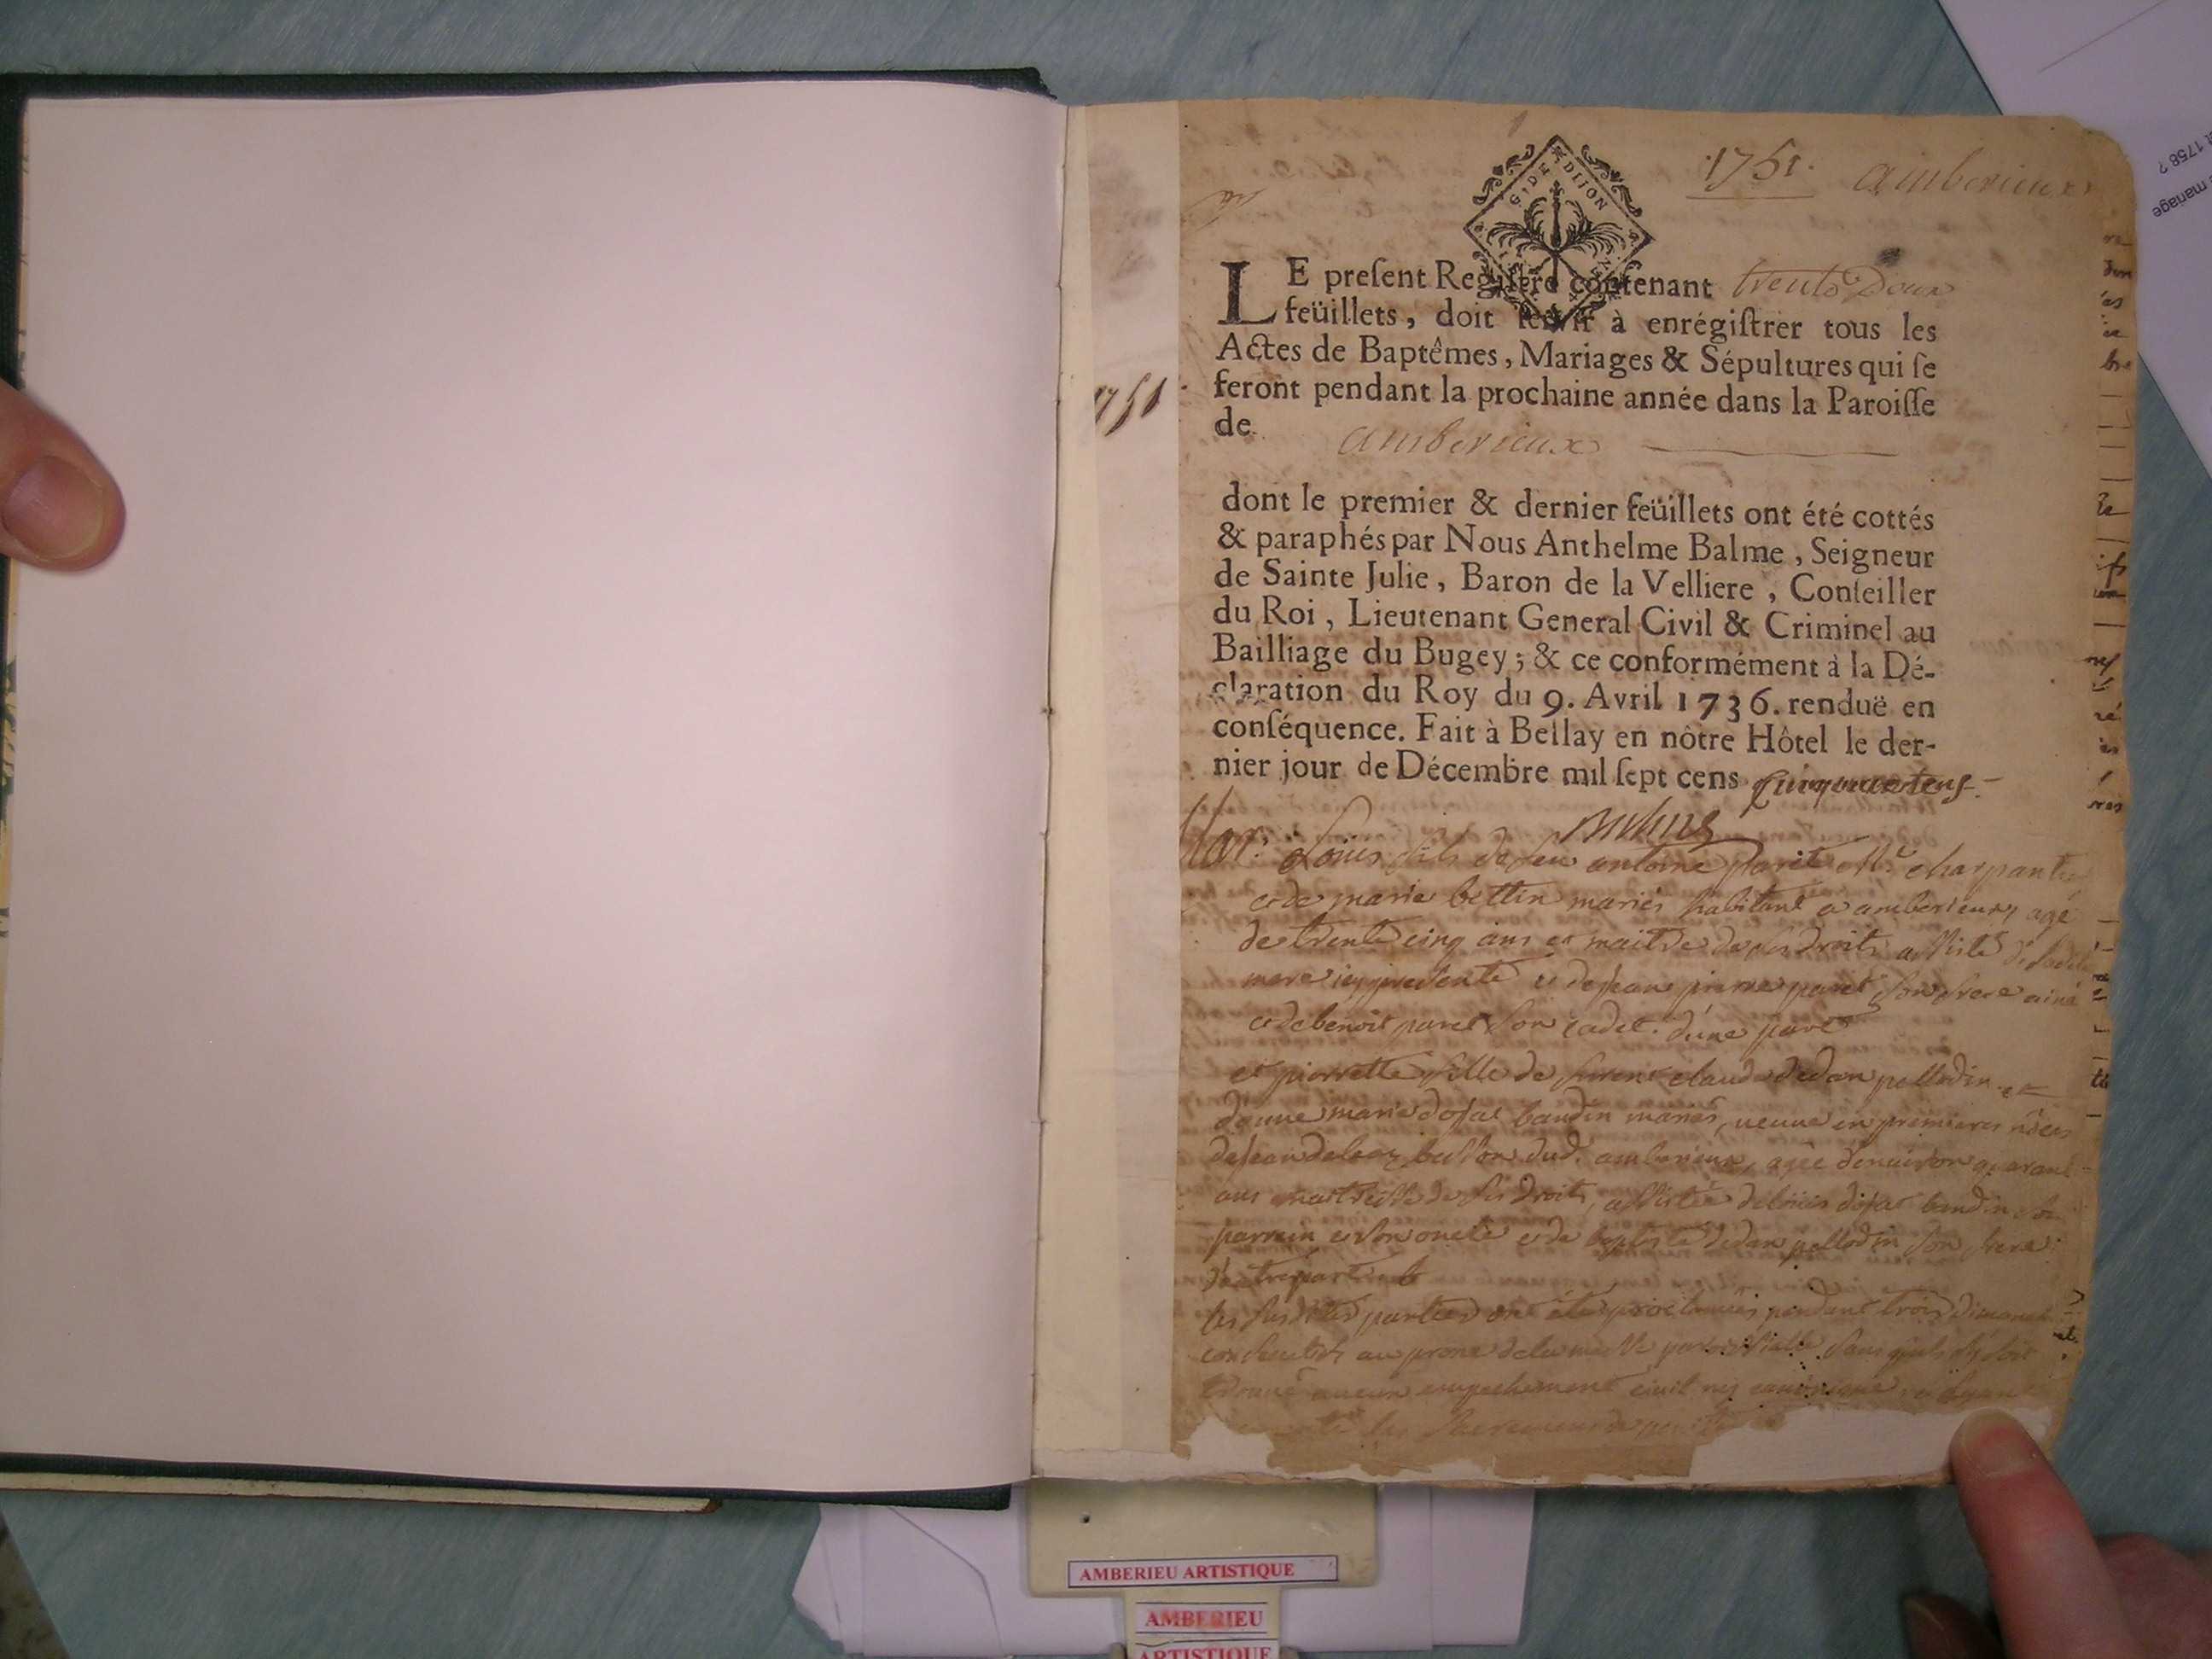 ·1751· amberieux
G. DE DIJON
LE preſent Regiſtre contenant trente Deux
feüillets, doit ſervir à enrégiſtrer tous les
Actes de Baptêmes, Mariages & Sépultures qui ſe
feront pendant la prochaine année dans la Paroiſſe
de amberieux
1751
dont le premier & dernier feüillets ont été cottés
& paraphés par Nous Anthelme Balme, Seigneur
de Sainte Julie, Baron de la Velliere, Conſeiller
du Roi, Lieutenant General Civil & Criminel au
Bailliage du Bugey; & ce conformément à la Dé-
claration du Roy du 9. Avril 1736. renduë en
conſéquence. Fait à Bellay en nôtre Hôtel le der-
nier jour de Décembre mil ſept cens
Mar. Louis fils de feu antoine paret Me. charpantier
et de marie bettin mariés habitant a amberieux, agé
de trente cinq ans et maitre de ses droits assisté de sadite
mere icy presente et de jean pierre paret son frere ainé
et de benoit paret son cadet. d'une part
et pierrette fille de furent claude dedan pellodin et
d'anne marie dojat baudin mariés, veuve en premieres nôces
de jean dud. amberieux, agée d'environ quarante
ans maitresse de ses droits, assistée de loüis dojat baudin son
parrain et son oncle et de baptiste dedan pellodin son frere
d'autre part
les susdites parties ont été proclamées pendant trois dimanches
consecutifs au prone de la messe paroissialle sans qu'il s'y soit
trouvé aucun empechement civil ny canonique
les sacremens de
t 1758 ?
mariage
AMBERIEU ARTISTIQUE
AMBERIEU
ARTISTIQUE